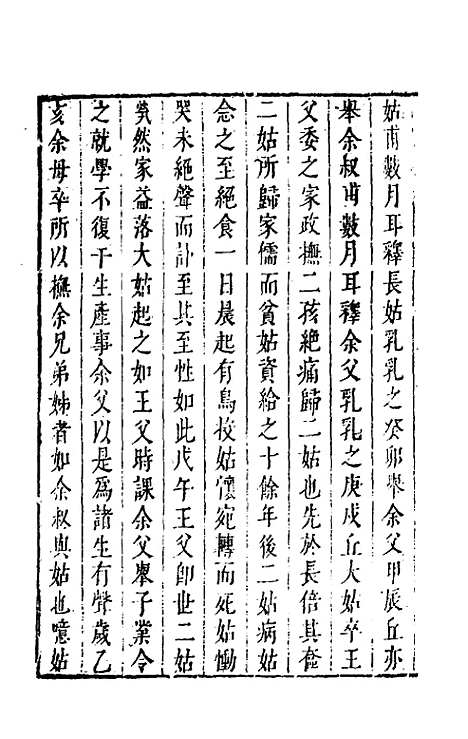 姑甫數月耳釋長姑乳乳之癸卯舉余父甲辰丘亦
舉余叔甫數月耳釋余父乳乳之庚戌丘大姑卒王
父委之家政撫二孩絶痛歸二姑也先於長倍其奩
二姑所歸家儒而貧姑資給之十餘年後二姑病姑
念之至絕食一日晨起有鳥投姑懷宛轉而死姑慟
哭未絕聲而訃至其至性如此戊午王父卽世二姑
煢然家益落大姑起之如王父時課余父舉子業令
之就學不復干生產事余父以是爲諸生有聲歲乙
亥余母卒所以撫余兄弟姊者如余叔與姑也噫姑